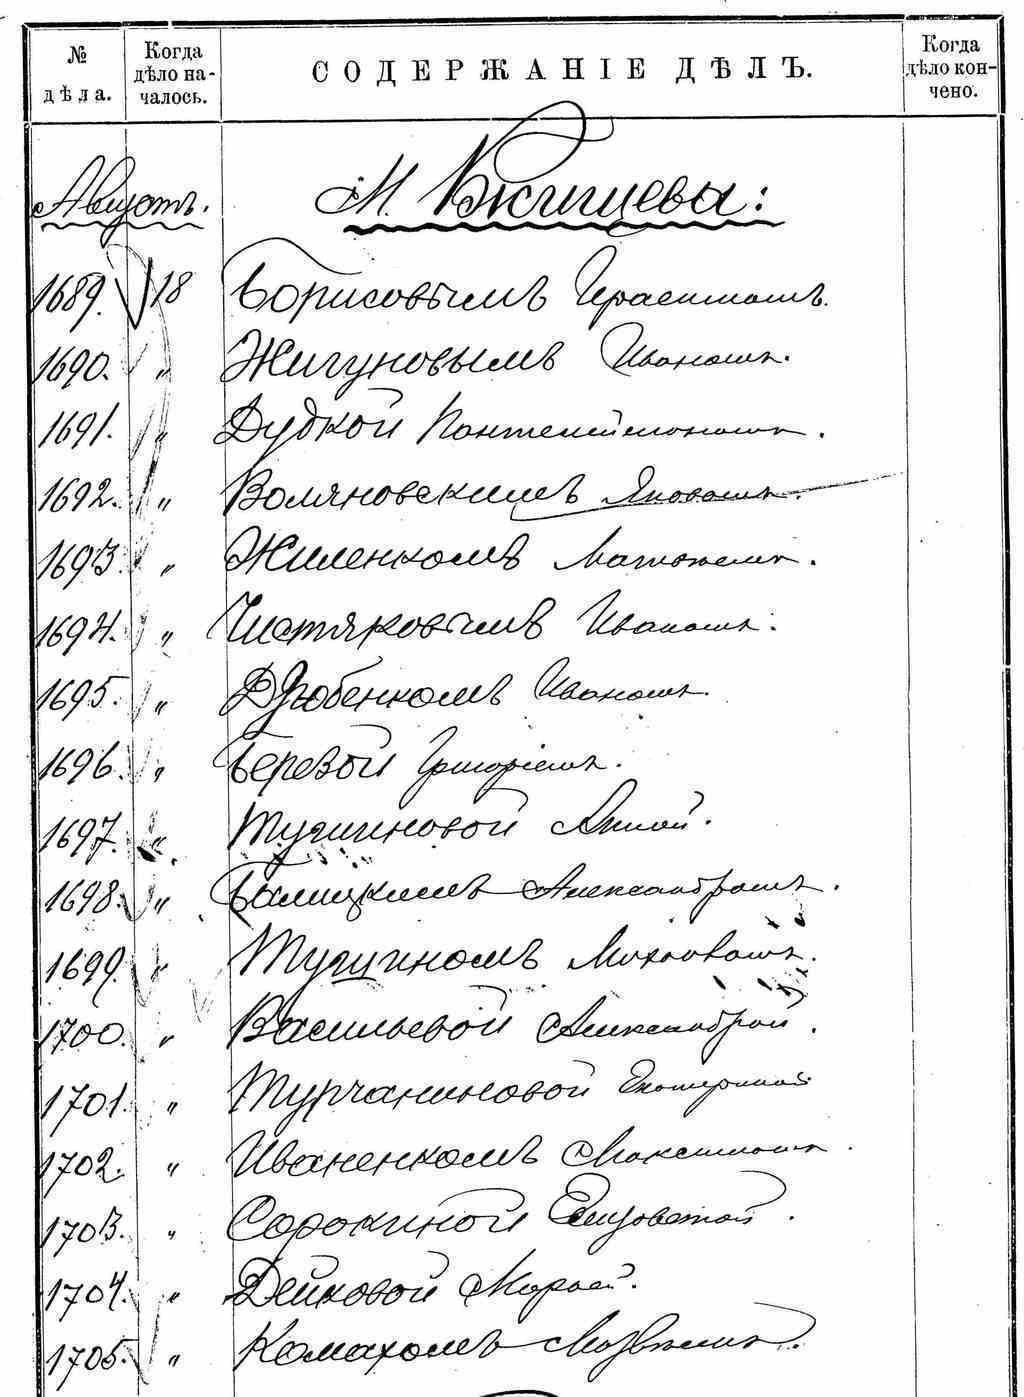 № дѣла. Когда дѣло началось. СОДЕРЖАНІЕ ДѢЛЪ. Когда дѣло кончено.
Августъ. М.
1689. 18 Борисовымъ Герасимомъ.
1690. " Жигуновымъ Иваномъ.
1691. " Дудкой Пантелеймономъ.
1692. " Воляновскимъ Яковомъ.
1693. " Жиленкомъ Матвѣемъ.
1694. " Чистяковымъ Иваномъ.
1695. " Дзюбенкомъ Иваномъ.
1696. " Березой Григоріемъ.
1697. " Анной.
1698. " Балицкимъ Александромъ.
1699. " Михаиломъ.
1700. " Васильевой Александрой.
1701. " Турчаниновой Екатериной
1702. " Иваненкомъ Максимомъ.
1703. " Сорокиной Елизаветой.
1704. " Дейковой Марьей.
1705. " Камахомъ Матвѣемъ.